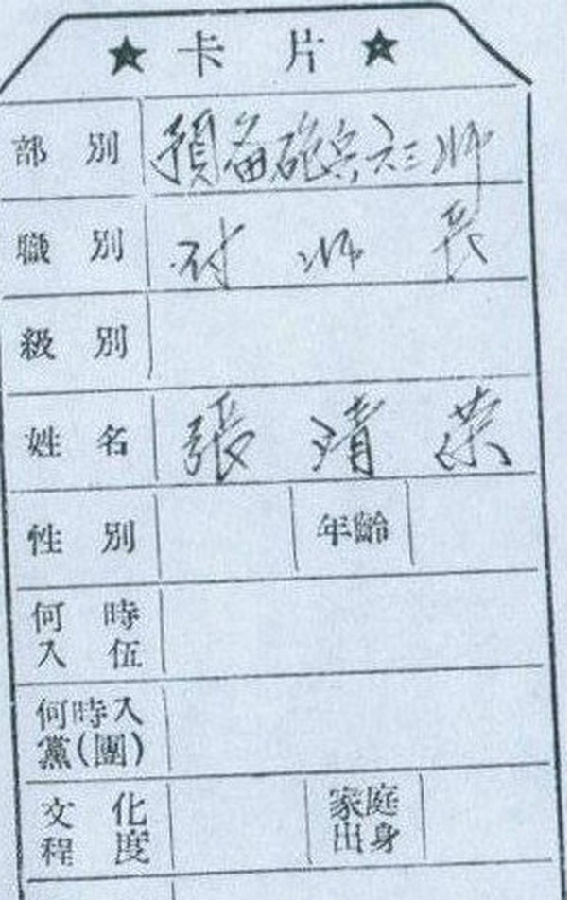 ★ 卡 片 ★
部 別 預备砲兵六三师
職 別 付 师 長
級 別
姓 名 張 清 荣
性 別 年齡
何 時
入 伍
何時入
黨(團)
文 化 家庭
程 度 出身